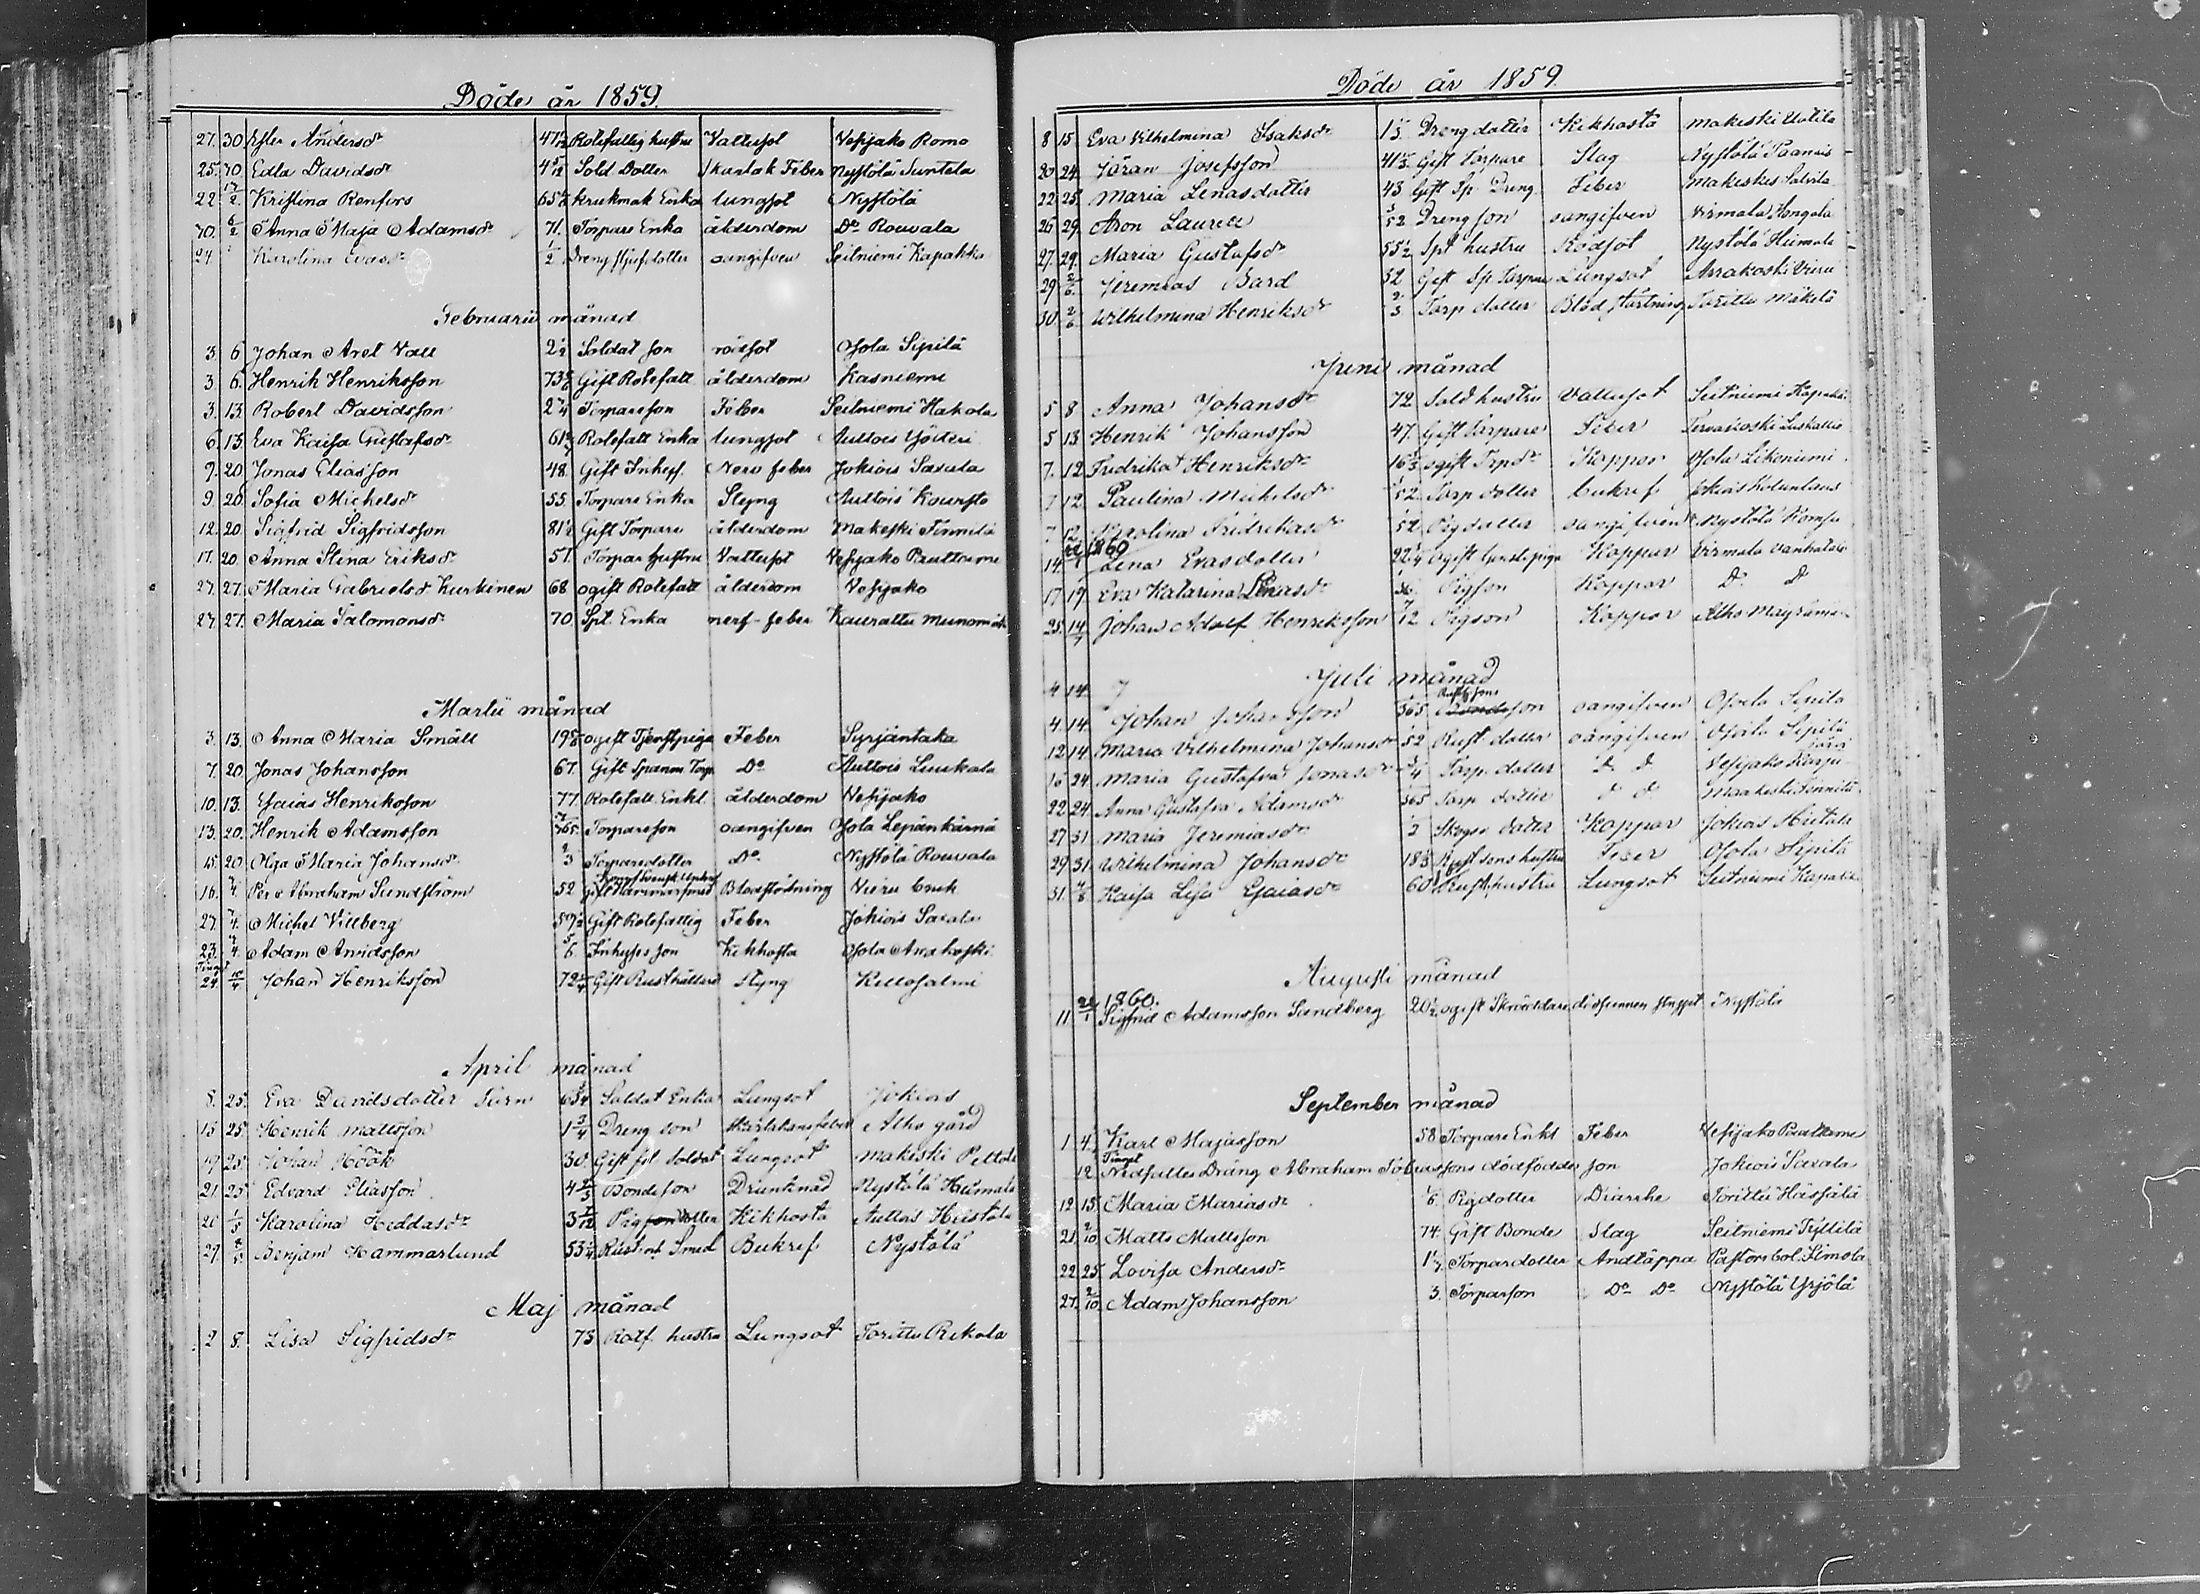 Döde år 1859.
27. 30. Ester Andersdr 47 1/2 Rotefattig hustru Vattusot Vesijako Romo
25. 30. Edla Davidsdr 4 5/12 Sold Dotter Skarlak Feber Nystölä Suntela
22 12/2. Kristina Renfors 65 1/2 krukmak Enka lungsot Nystölä
30. 6/2 Anna Maja Adamsdr 71. Torpare Enka ålderdom Do Rouvala
24 Karolina Evasdr 1/2 Dreng stjufdotter oangifven Seitniemi Kapakka
Februarii månad
3. 6. Johan Axel Vall 2 1/2 Soldat son rödsot Osola Sipilä
3. 6. Henrik Henriksson 73 Gift Rotefatt ålderdom Kasniemi
3. 13. Robert Davidsson 2 1/4 Torpareson Feber Seitniemi Hakola
6. 13. Eva Kaisa Gustafsdr 61 Rotefatt Enka lungsot Auttois Ylösteri
9. 20. Jonas Eliasson 48. Gift Inhys. Nerv feber Jokiois Saxala
9. 20. Sofia Michelsdr 55. Torpare Enka Styng Auttois Kouvisto
12. 20. Sigfrid Sigfridsson 81 1/2 Gift Torpare ålderdom Makeski Finnilä
17. 20. Anna Stina Eriksdr 57. Torpar hustru Vattusot Vesijako Pauttamo
27. 27. Maria Gabrielsd Kurkinen 68 ogift Rotefatt ålderdom Vesijako
27. 27. Maria Salomonsdr 70. Spt. Enka nerf-feber Kaurattu
Martii månad
3. 13. Anna Maria Småll 19 ogift Tjenstpiga Feber Syrjäntaka
7. 20. Jonas Johansson 67. Gift Spanm Torp Do Auttois Luukala
10. 13. Esaias Henriksson 77. Rotefatt. Enkl. ålderdom Vesijako
13. 20. Henrik Adamsson /365. Torpareson oangifven Osola Lepänkärnä
15. 20. Olga Maria Johansdr 2/3 Torparedotter Do Nystölä Rouvala
16. 7/4 Per Abraham Sundström 52 Gift Hammarsmed Blodstörtning Vieru bruk
27. 7/4. Michel Villberg 57 1/2 Gift Rotefattig Feber Jokiois Saxala
23. 7/4. Adam Arvidsson 5/6. Inhyses son Kikhosta Osola Arakoski
Tinget
24. 10/4 Johan Henriksson 72 1/4 Gift Rusthållare Styng Kellosalmi
April månad
8. 25. Eva Davidsdotter Törn 65 3/4 Soldat Enka Lungsot Jokiois
15 25. Henrik Mattsson 1 3/4 Dreng son Skarlakansfeber Alho gård
19 25. Johan Höök 30. Gift fd. Soldat Lungsot Makeski Peltola
21 25 Edvard Eliasson 4 2/3 Bondeson Drunknad Nystölä Heimala
26 1/5 Karolina Heddasdr 3 7/12 Pig dotter Kikhosta Auttois Heistola
27. 8/5. Benjam Hammarlund 53 1/4 Rust. Smed Bukref Nystölä
Maj månad
2 8. Lisa Sigfridsdr 73 Rotf. hustru Lungsot Torittu Rekola
Döde år 1859.
8 15 Eva Vilhelmina Isaksdr 1 1/3 Drengdotter Kikhosta Makeski Uotila
20 24. Jöran Josefsson 41 1/2 Gift Torpare Slag Nystölä Paavais
22 25. Maria Lenasdotter 43 Gift Sp. Dreng. Feber Makeskis Salvila
26 29. Aron Laurell 3/52 Drengson oangifven Virmala Hongola
27. 29. Maria Gustafsdr 55 1/2 Spt. hustru Rödsot Nystölä Heimala
29 2/6. Jeremias Bard 32 Gift Sp. Torpare Lungsot Arrakoski Vieru
30. 2/6 Wilhelmina Henriksdr 2/3 Torp dotter Blodstörtning Torittu Mäkelä
Juni månad
5 8 Anna Johansdr 72 Sold hustru Vattusot Seitniemi Kapakka
5 13 Henrik Johansson 47. Gift Torpare Feber Tervakoski
7. 12 Fredrika Henriksdr 16 1/2 ogift Trpdr Koppor Osola Likoniemi
7 12 Paulina Michelsdr /52 Torp dotter bukref Jokiois
7 12 Karolina Fredrikasdr /52 Pigdotter oangifven Nystölä Rompu
1860
14. Lena Evasdotter 22 1/4 ogift Gardspiga Koppor Virmala Vanhatalo
17 19 Eva Katarina Lenasdr Pigson Koppor Do Do
25. 14/7 Johan Adolf Henriksson /12 Pigson Koppor Alho
Juli månad
4 14 J
4. 14. Johan Johansson /365 son oangifven Osola Sipilä
12 14 Maria Vilhelmina Johansdr /52 Rust dotter oangifven Osola Sipilä
16 24 Maria Gustafva Jonasdr 3/4 Torp. dotter Do Do Vesijako
22 24 Anna Gustafva Adamsdr /365 Torp dotter Do Do Maakeski Finnilä
27 31 Maria Jeremiasdr 1/2 Skogsv dotter Koppor Jokiois Hietala
29 31 Wilhelmina Johansdr 18 Rust sons hustru Feber Osola Sipilä
31. 7/8 Kaisa Lisa Esaiasdr 60 Rust. hustru Lungsot Seitniemi Kapakka
Augusti månad
22 1860.
11 /1 Sigfrid Adamsson Sandberg 20 1/2 ogift Skräddare Nystölä
September månad
1 4. Karl Majasson 58 Torpare Enkl Feber Vesijako Pauttamo
Tinget
12 Nedfattes Dräng Abraham Tobiassons dödfödde son Jokiois Saxala
12 15. Maria Mariasdr 1/6. Pigdotter Diarrhe Torittu Hässälä
21. 2/10 Matts Mattsson 74. Gift Bonde Slag Seitniemi Tyttilä
22. 25. Lovisa Andersdr 1 1/7 Torpardotter Andtäppa Pastors bol. Simola
27. 2/10. Adam Johansson 3. Torparson Do Do Nystölä Yrjölä